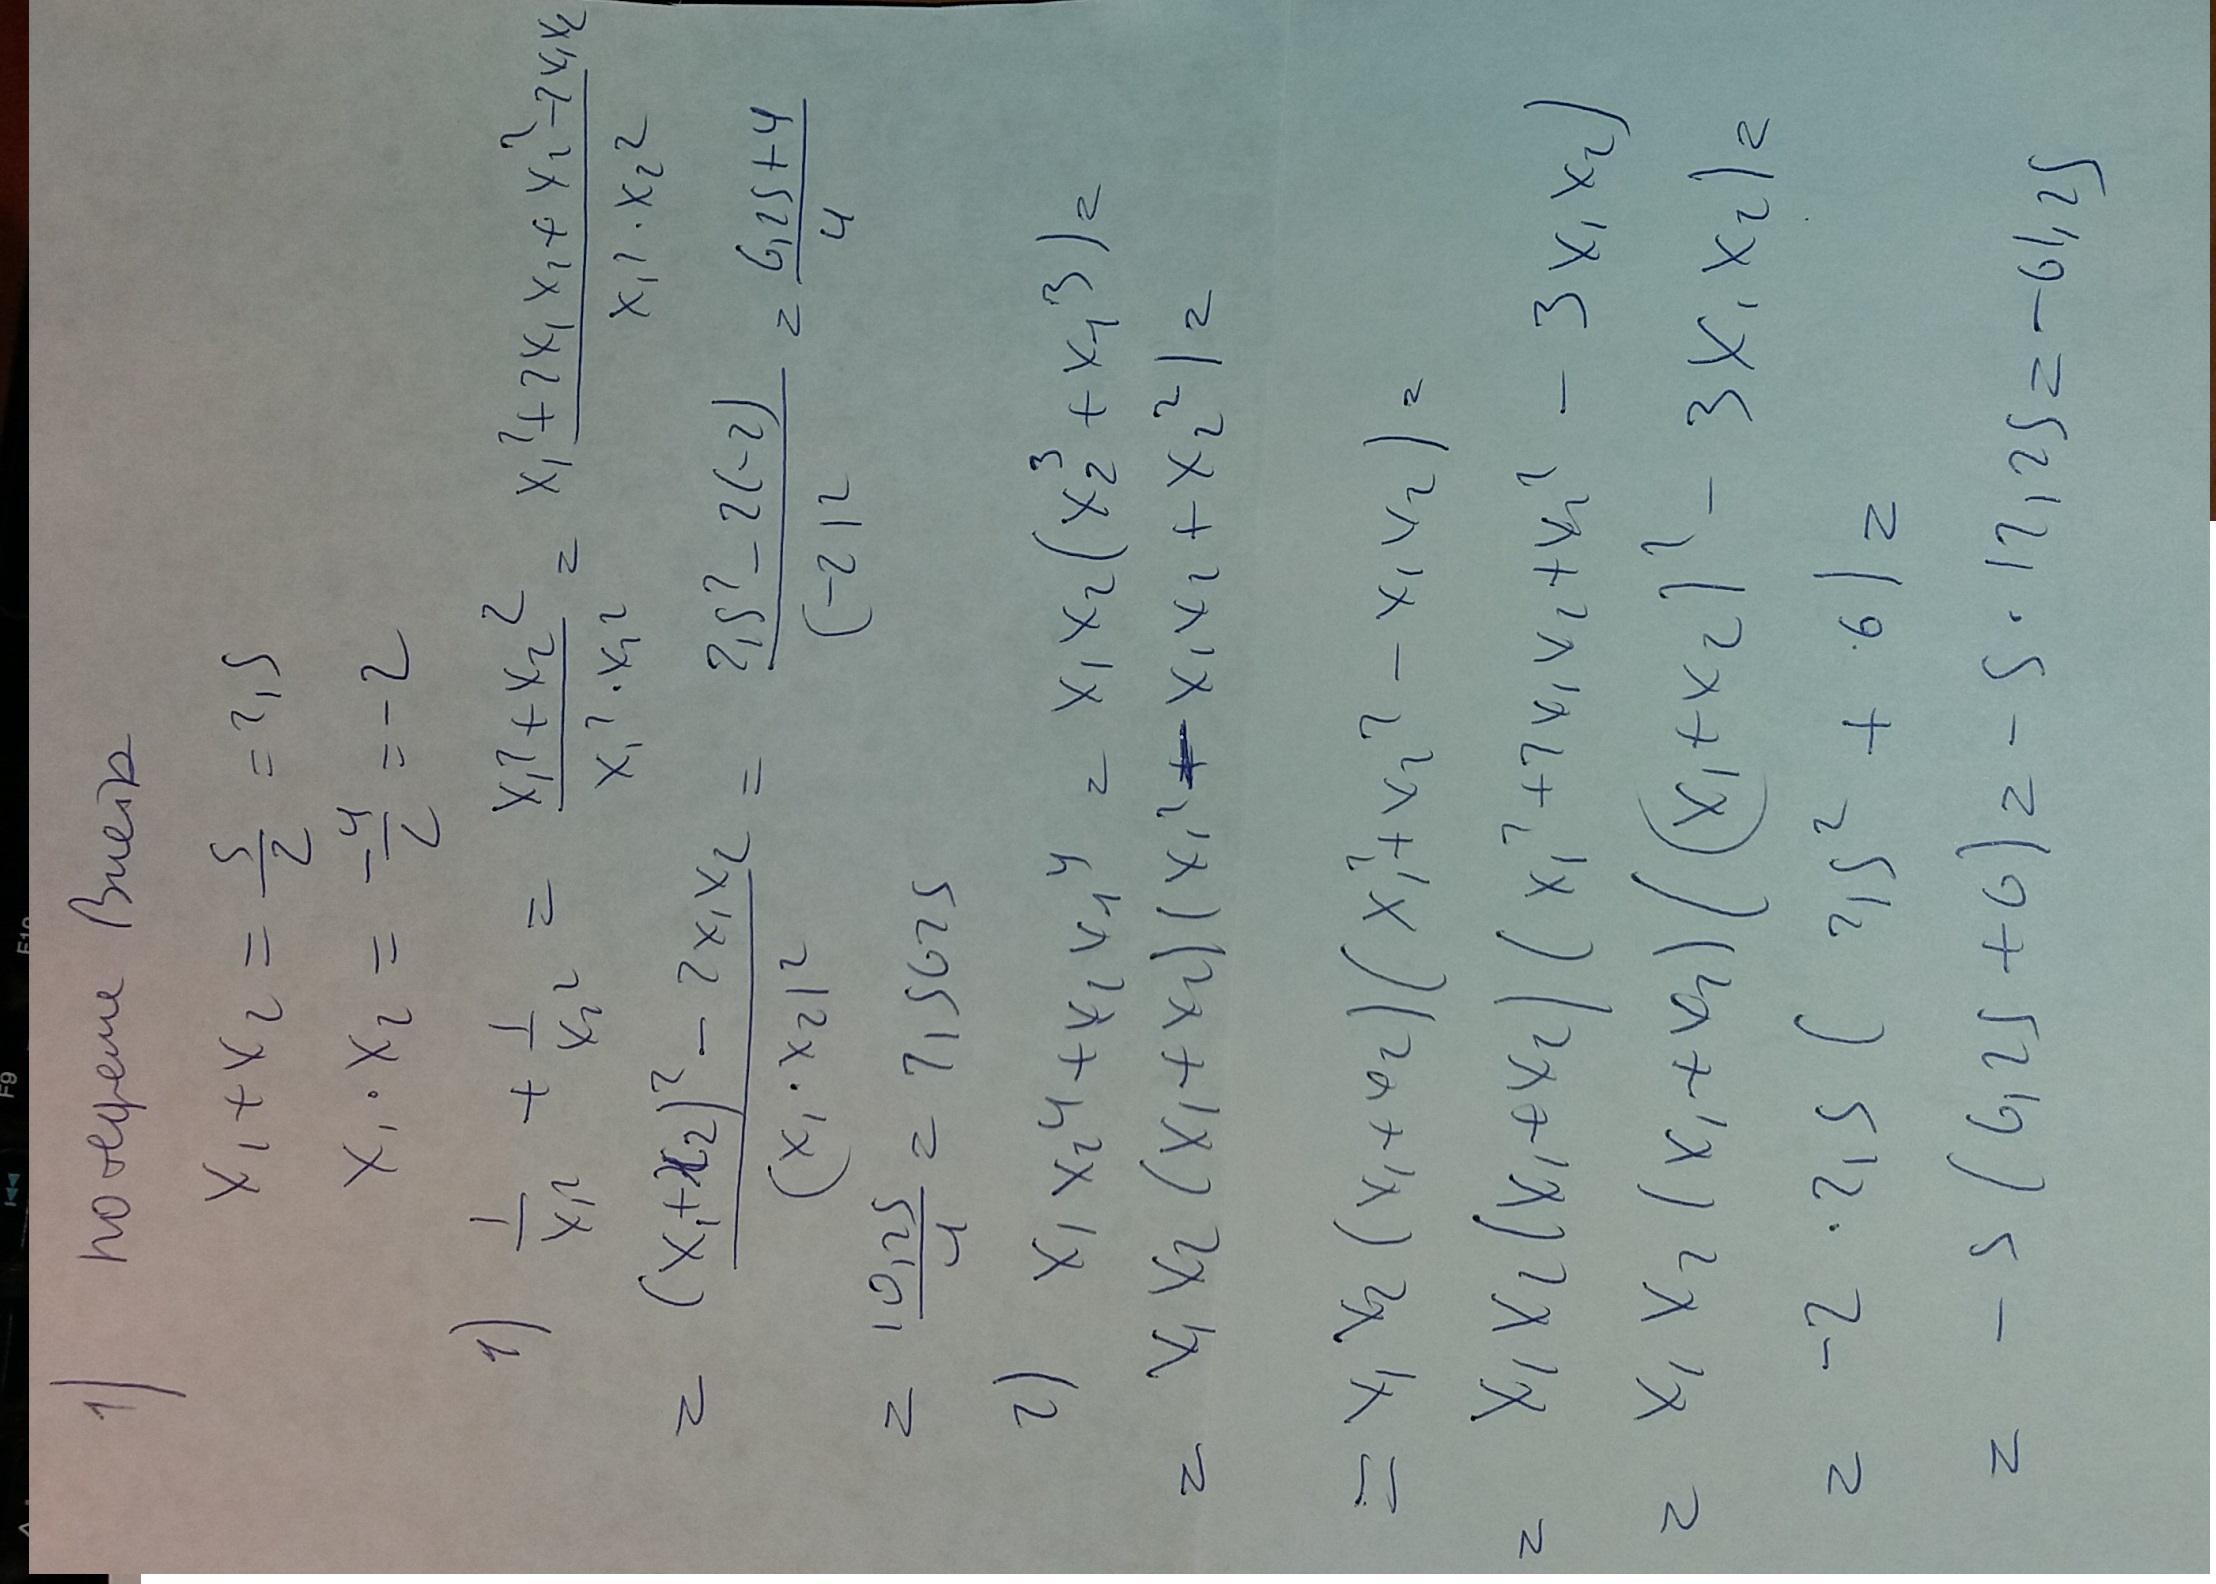 1) по теореме Виета
x₁ + x₂ = 5/2 = 2,5
x₁ · x₂ = -4/2 = -2
1) 1/x₁² + 1/x₂² = (x₁² + x₂²)/(x₁² · x₂²) = (x₁² + 2x₁x₂ + x₂² - 2x₁x₂)/(x₁² · x₂²)
= ((x₁ + x₂)² - 2x₁x₂)/(x₁ · x₂)² = (2,5² - 2(-2))/(-2)² = (6,25 + 4)/4
= 10,25/4 = 2,5625
2) x₁x₂⁴ + x₂x₁⁴ = x₁x₂(x₂³ + x₁³) =
= x₁x₂(x₁ + x₂)(x₁² - x₁x₂ + x₂²) =
= x₁x₂(x₁ + x₂)(x₁² + x₂² - x₁x₂) =
= x₁x₂(x₁ + x₂)(x₁² + 2x₁x₂ + x₂² - 3x₁x₂)
= x₁x₂(x₁ + x₂)((x₁ + x₂)² - 3x₁x₂) =
= -2 · 2,5(2,5² + 6) =
= -5(6,25 + 6) = -5 · 12,25 = -61,25
F9